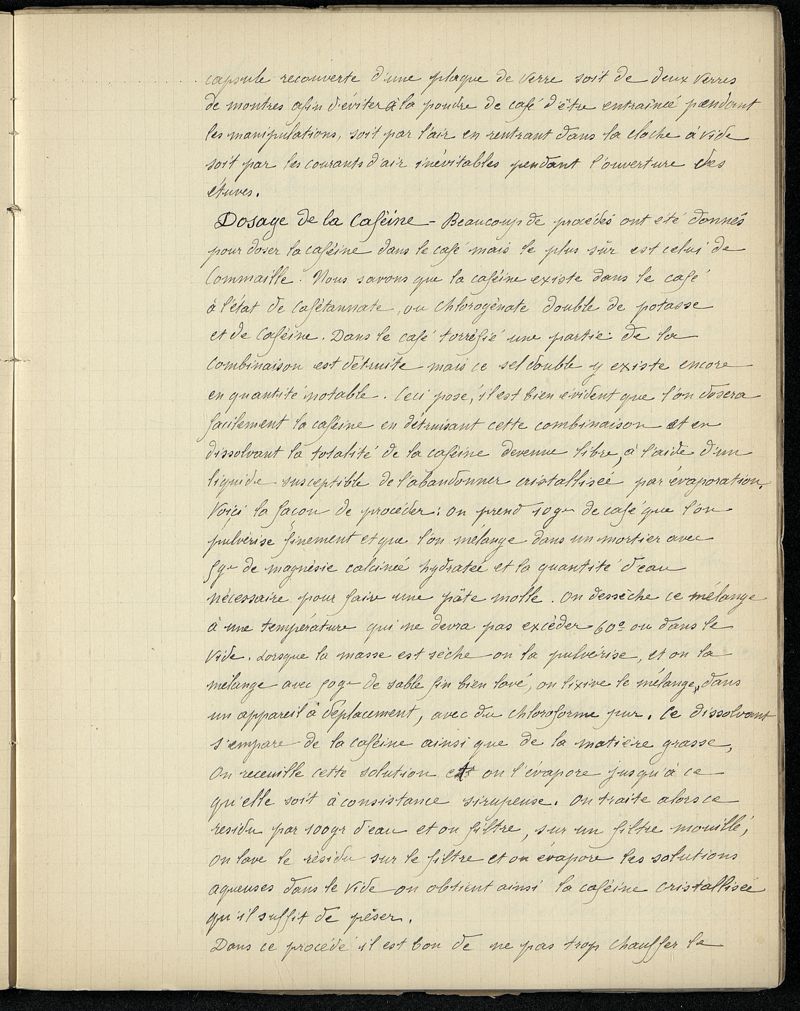 capsule recouverte d'une plaque de verre soit de deux verres
de montres afin d'éviter à la poudre de café d'être entrainée pendant
les manipulations, soit par l'air en rentrant dans la cloche à vide
soit par les courants d'air inévitables pendant l'ouverture des
étuves.
Dosage de la Caféine - Beaucoup de procédés ont été donnés
pour doser la caféine dans le café mais le plus sûr est celui de
Commaille. Nous savons que la caféine existe dans le café
à l'état de Cafétannate, ou Chlorogénate double de potasse
et de Caféine. Dans le café torréfié une partie de la
Combinaison est détruite mais ce sel double y existe encore
en quantité notable. Ceci posé, il est bien évident que l'on dosera
facilement la caféine en détruisant cette combinaison et en
dissolvant la totalité de la caféine devenue libre, à l'aide d'un
liquide susceptible de l'abandonner cristallisée par évaporation.
Voici la façon de procéder: On prend 50gr de café que l'on
pulvérise finement et que l'on mélange dans un mortier avec
5gr de magnésie calcinée hydratée et la quantité d'eau
nécessaire pour faire une pâte molle. On dessèche ce mélange
à une température qui ne devra pas excéder 60° ou dans le
Vide. Lorsque la masse est sèche on la pulvérise, et on la
mélange avec 50gr de sable fin bien lavé, on lixive le mélange, dans
un appareil à déplacement, avec du Chloroforme pur. Ce dissolvant
s'empare de la caféine ainsi que de la matière grasse,
On receuille cette solution et on l'évapore jusqu'à ce
qu'elle soit à consistance sirupeuse. On traite alors ce
residu par 100gr d'eau et on filtre, sur un filtre mouillé,
on lave le résidu sur le filtre et on évapore les solutions
aqueuses dans le vide on obtient ainsi la caféine cristallisée
qu'il suffit de pêser.
Dans ce procédé il est bon de ne pas trop chauffer le